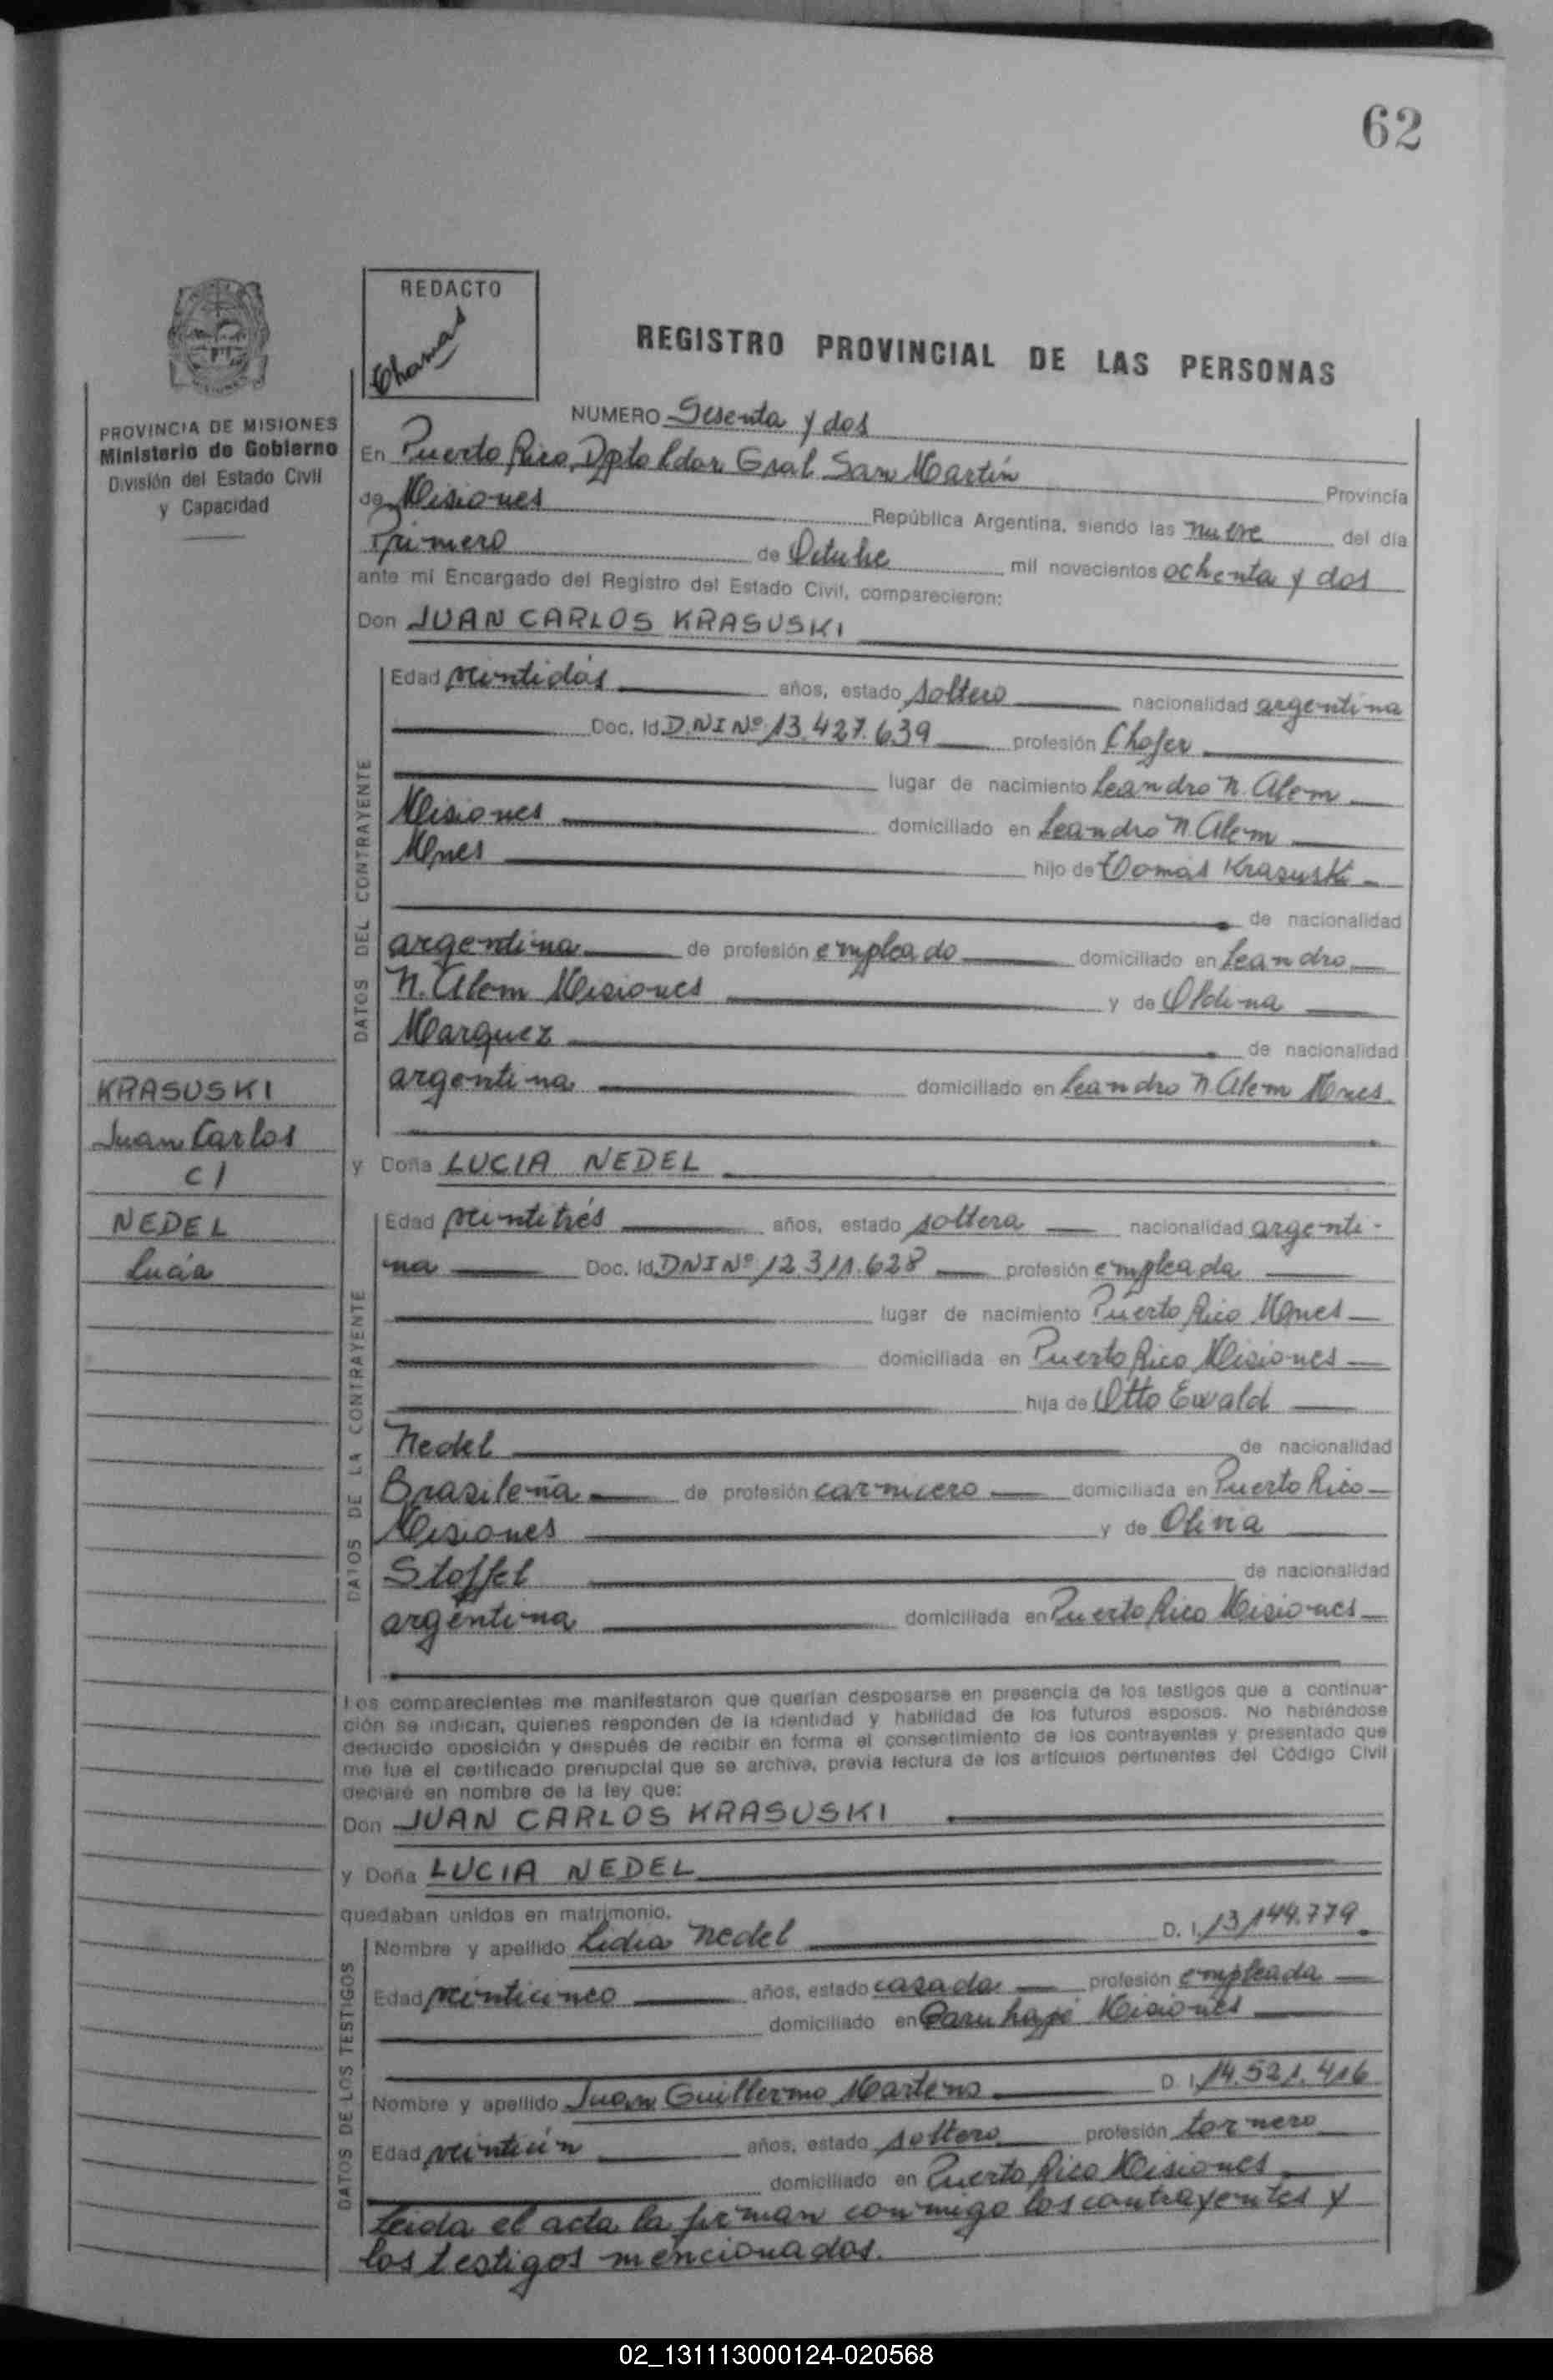 62
REDACTO
Chamas
REGISTRO PROVINCIAL DE LAS PERSONAS
PROVINCIA DE MISIONES
Ministerio de Gobierno
División del Estado Civil
y Capacidad
NUMERO Sesenta y dos
En Puerto Rico, Dpto Ldor Gral San Martín
Provincia
de Misiones República Argentina, siendo las nueve del día
Primero de Octubre mil novecientos ochenta y dos
ante mi Encargado del Registro del Estado Civil, comparecieron:
Don JUAN CARLOS KRASUSKI
DATOS DEL CONTRAYENTE
Edad veintidós años, estado soltero nacionalidad argentina
Doc. Id. D.N.I Nº 13.427.639 profesión Chofer
lugar de nacimiento Leandro N. Alem
Misiones domiciliado en Leandro N. Alem
Mnes hijo de Tomás Krasuski
de nacionalidad
argentina de profesión empleado domiciliado en Leandro
N. Alem Misiones y de
Marquez de nacionalidad
argentina domiciliado en Leandro N. Alem Mnes.
KRASUSKI
Juan Carlos
c/
NEDEL
Lucía
y Doña LUCIA NEDEL
DATOS DE LA CONTRAYENTE
Edad veintitrés años, estado soltera nacionalidad argenti-
na Doc. Id. DNI Nº 12.311.628 profesión empleada
lugar de nacimiento Puerto Rico Mnes
domiciliada en Puerto Rico Misiones
hija de Otto Ewald
Nedel de nacionalidad
Brasileña de profesión carnicero domiciliada en Puerto Rico
Misiones y de Oliva
Stoffel de nacionalidad
argentina domiciliada en Puerto Rico Misiones
Los comparecientes me manifestaron que querían desposarse en presencia de los testigos que a continua-
ción se indican, quienes responden de la identidad y habilidad de los futuros esposos. No habiéndose
deducido oposición y después de recibir en forma el consentimiento de los contrayentes y presentado que
me fue el certificado prenupcial que se archiva, previa lectura de los artículos pertinentes del Código Civil
declaré en nombre de la ley que:
Don JUAN CARLOS KRASUSKI
y Doña LUCIA NEDEL
quedaban unidos en matrimonio.
DATOS DE LOS TESTIGOS
Nombre y apellido Lidia Nedel D. I. 13.144.779
Edad veinticinco años, estado casada profesión empleada
domiciliado en Garuhapé Misiones
Nombre y apellido Juan Guillermo Martens D. I. 14.521.416
Edad veintiún años, estado soltero profesión tornero
domiciliado en Puerto Rico Misiones
Leida el acta la firman conmigo los contrayentes y
los testigos mencionados.
02_131113000124-020568